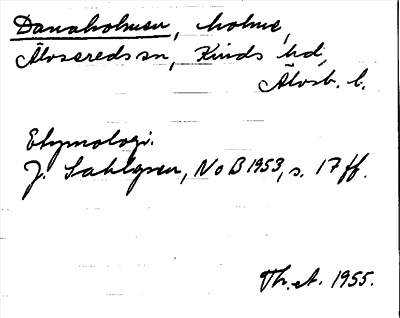 Danaholmen, holme,
Älvsereds sn, Kinds hd,
Älvsb. l.
Etymologi.
J. Sahlgren, NoB 1953, s. 17 ff.
Th. et. 1955.